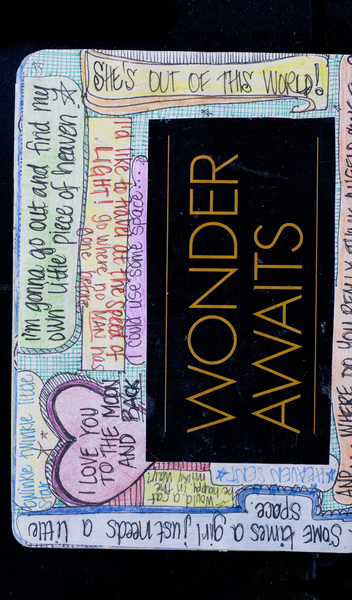 SHE'S OUT OF THIS WORLD!
i'm gonna go out and find my
own little piece of heaven
I'd like to travel at the speed of
LIGHT! go where no man has
gone before
I could use some space...
WONDER
AWAITS
twinkle twinkle little
star
I LOVE YOU
TO THE MOON
AND BACK
would a cat
be happy in the
milky way?
HEAVEN SENT
Some times a girl just needs a little
space
AND... WHERE DO YOU REALLY THINK